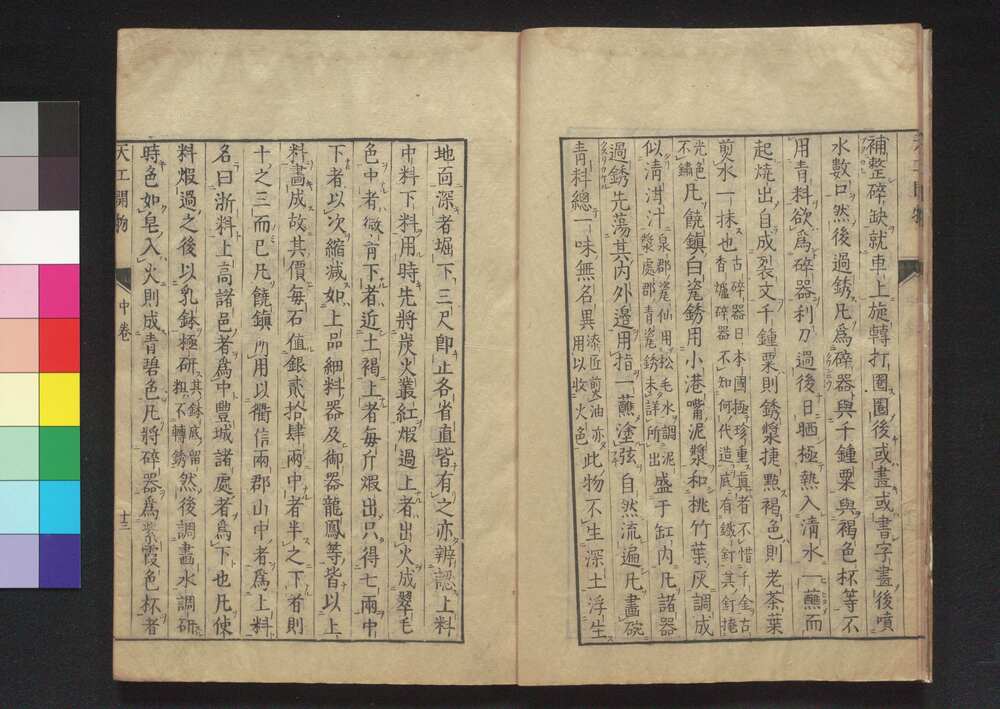 補整碎缺就車上旋轉打圈圈後或畫或書字畫後噴
水數口然後過銹凡爲碎器與千鍾粟與褐色杯等不
用青料欲爲碎器利刀過後日晒極熱入清水一蘸而
起燒出自成裂文千鍾粟則銹漿捷點褐色則老茶葉
煎水一抹也古碎器日本國極珍重眞者不惜千金古香爐碎器不知何代造底有鐵釘其釘掩
光色不鏽凡饒鎮白瓷銹用小港嘴泥漿和桃竹葉灰調成
似清泔汁泉郡瓷仙用松毛水調泥漿處郡青瓷銹未詳所出盛于缸內凡諸器
過銹先蕩其內外邊用指一蘸塗弦自然流遍凡畫碗
青料總一味無名異漆匠煎油亦用以收火色此物不生深土浮生
天工開物
地面深者堀下三尺卽止各省直皆有之亦辨認上料
中料下料用時先將炭火叢紅煆過上者出火成翠毛
色中者微青下者近土褐上者每斤煆出只得七兩中
下者以次縮減如上品細料器及御器龍鳳等皆以上
料畫成故其價每石值銀貳拾肆兩中者半之下者則
十之三而已凡饒鎮所用以衢信兩郡山中者爲上料
名曰浙料上高諸邑者爲中豐城諸處者爲下也凡使
料煆過之後以乳鉢極研其鉢底留粗不轉銹然後調畫水調研
時色如皂入火則成青碧色凡將碎器爲紫霞色杯者
天工開物 中卷 十二